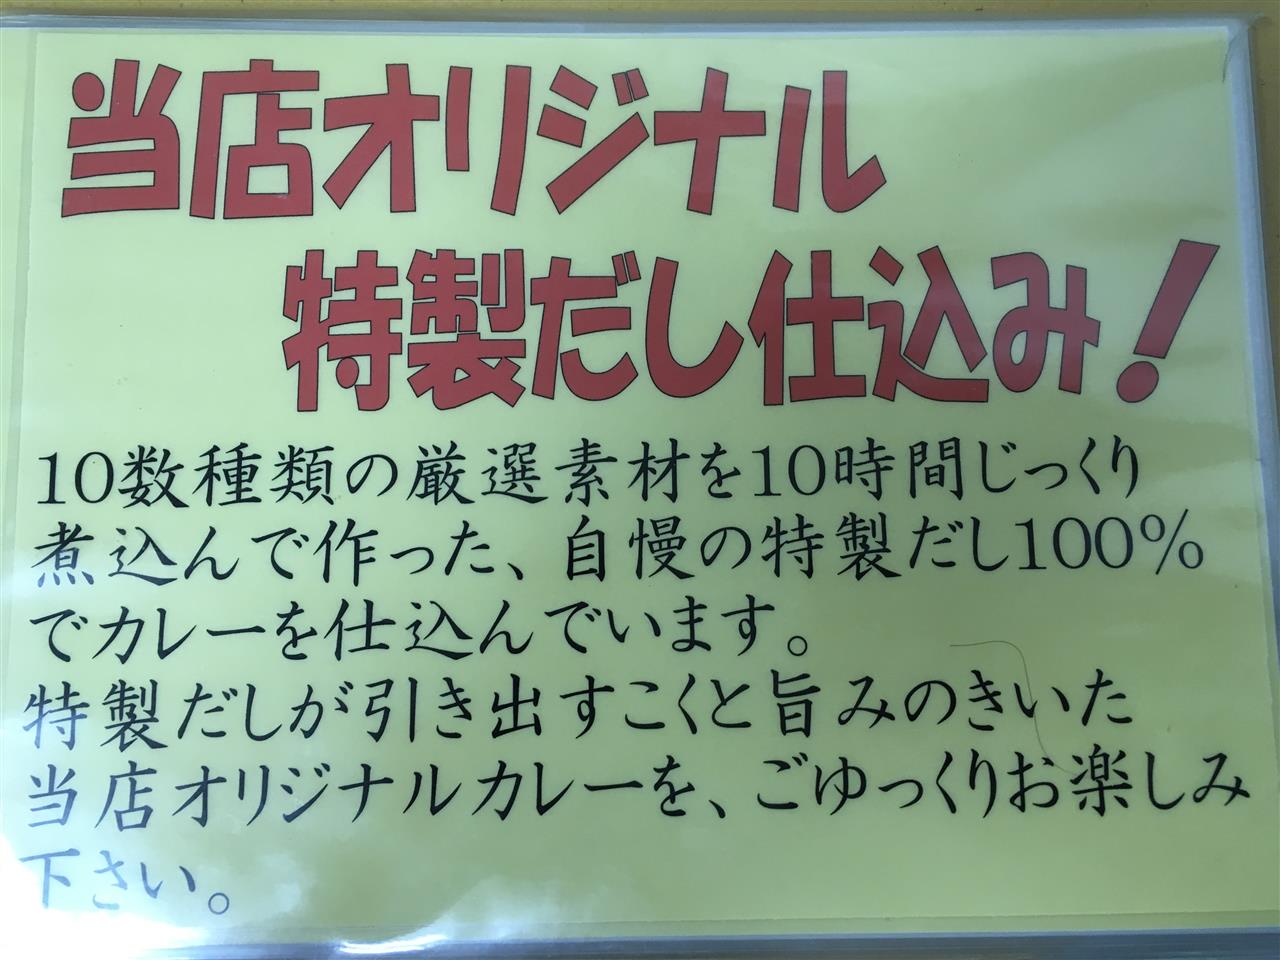 当店オリジナル
特製だし仕込み！
10数種類の厳選素材を10時間じっくり
煮込んで作った、自慢の特製だし100%
でカレーを仕込んでいます。
特製だしが引き出すこくと旨みのきいた
当店オリジナルカレーを、ごゆっくりお楽しみ
下さい。